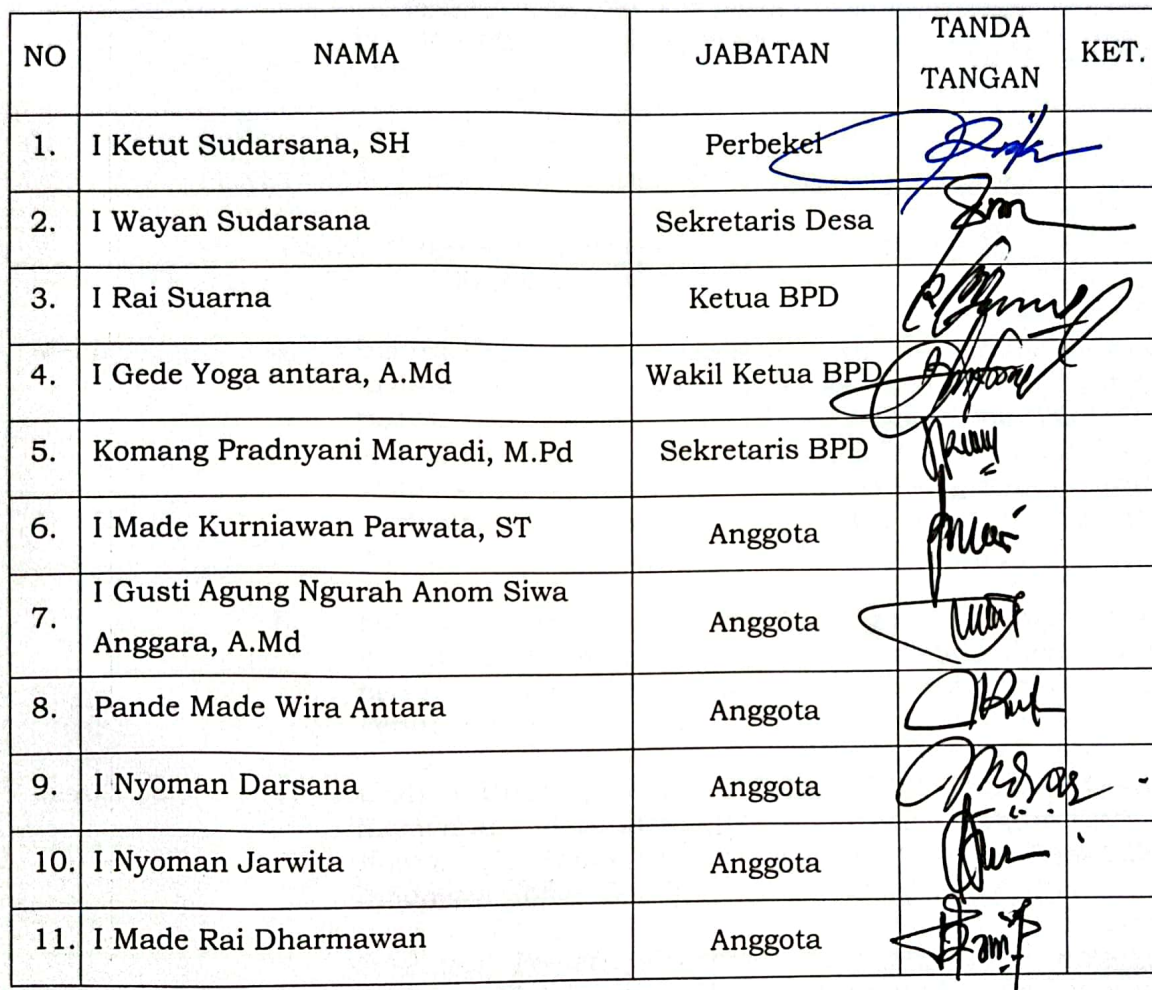 NO NAMA JABATAN TANDA TANGAN KET.
1. I Ketut Sudarsana, SH Perbekel
2. I Wayan Sudarsana Sekretaris Desa
3. I Rai Suarna Ketua BPD
4. I Gede Yoga antara, A.Md Wakil Ketua BPD
5. Komang Pradnyani Maryadi, M.Pd Sekretaris BPD
6. I Made Kurniawan Parwata, ST Anggota
7. I Gusti Agung Ngurah Anom Siwa
Anggara, A.Md Anggota
8. Pande Made Wira Antara Anggota
9. I Nyoman Darsana Anggota
10. I Nyoman Jarwita Anggota
11. I Made Rai Dharmawan Anggota